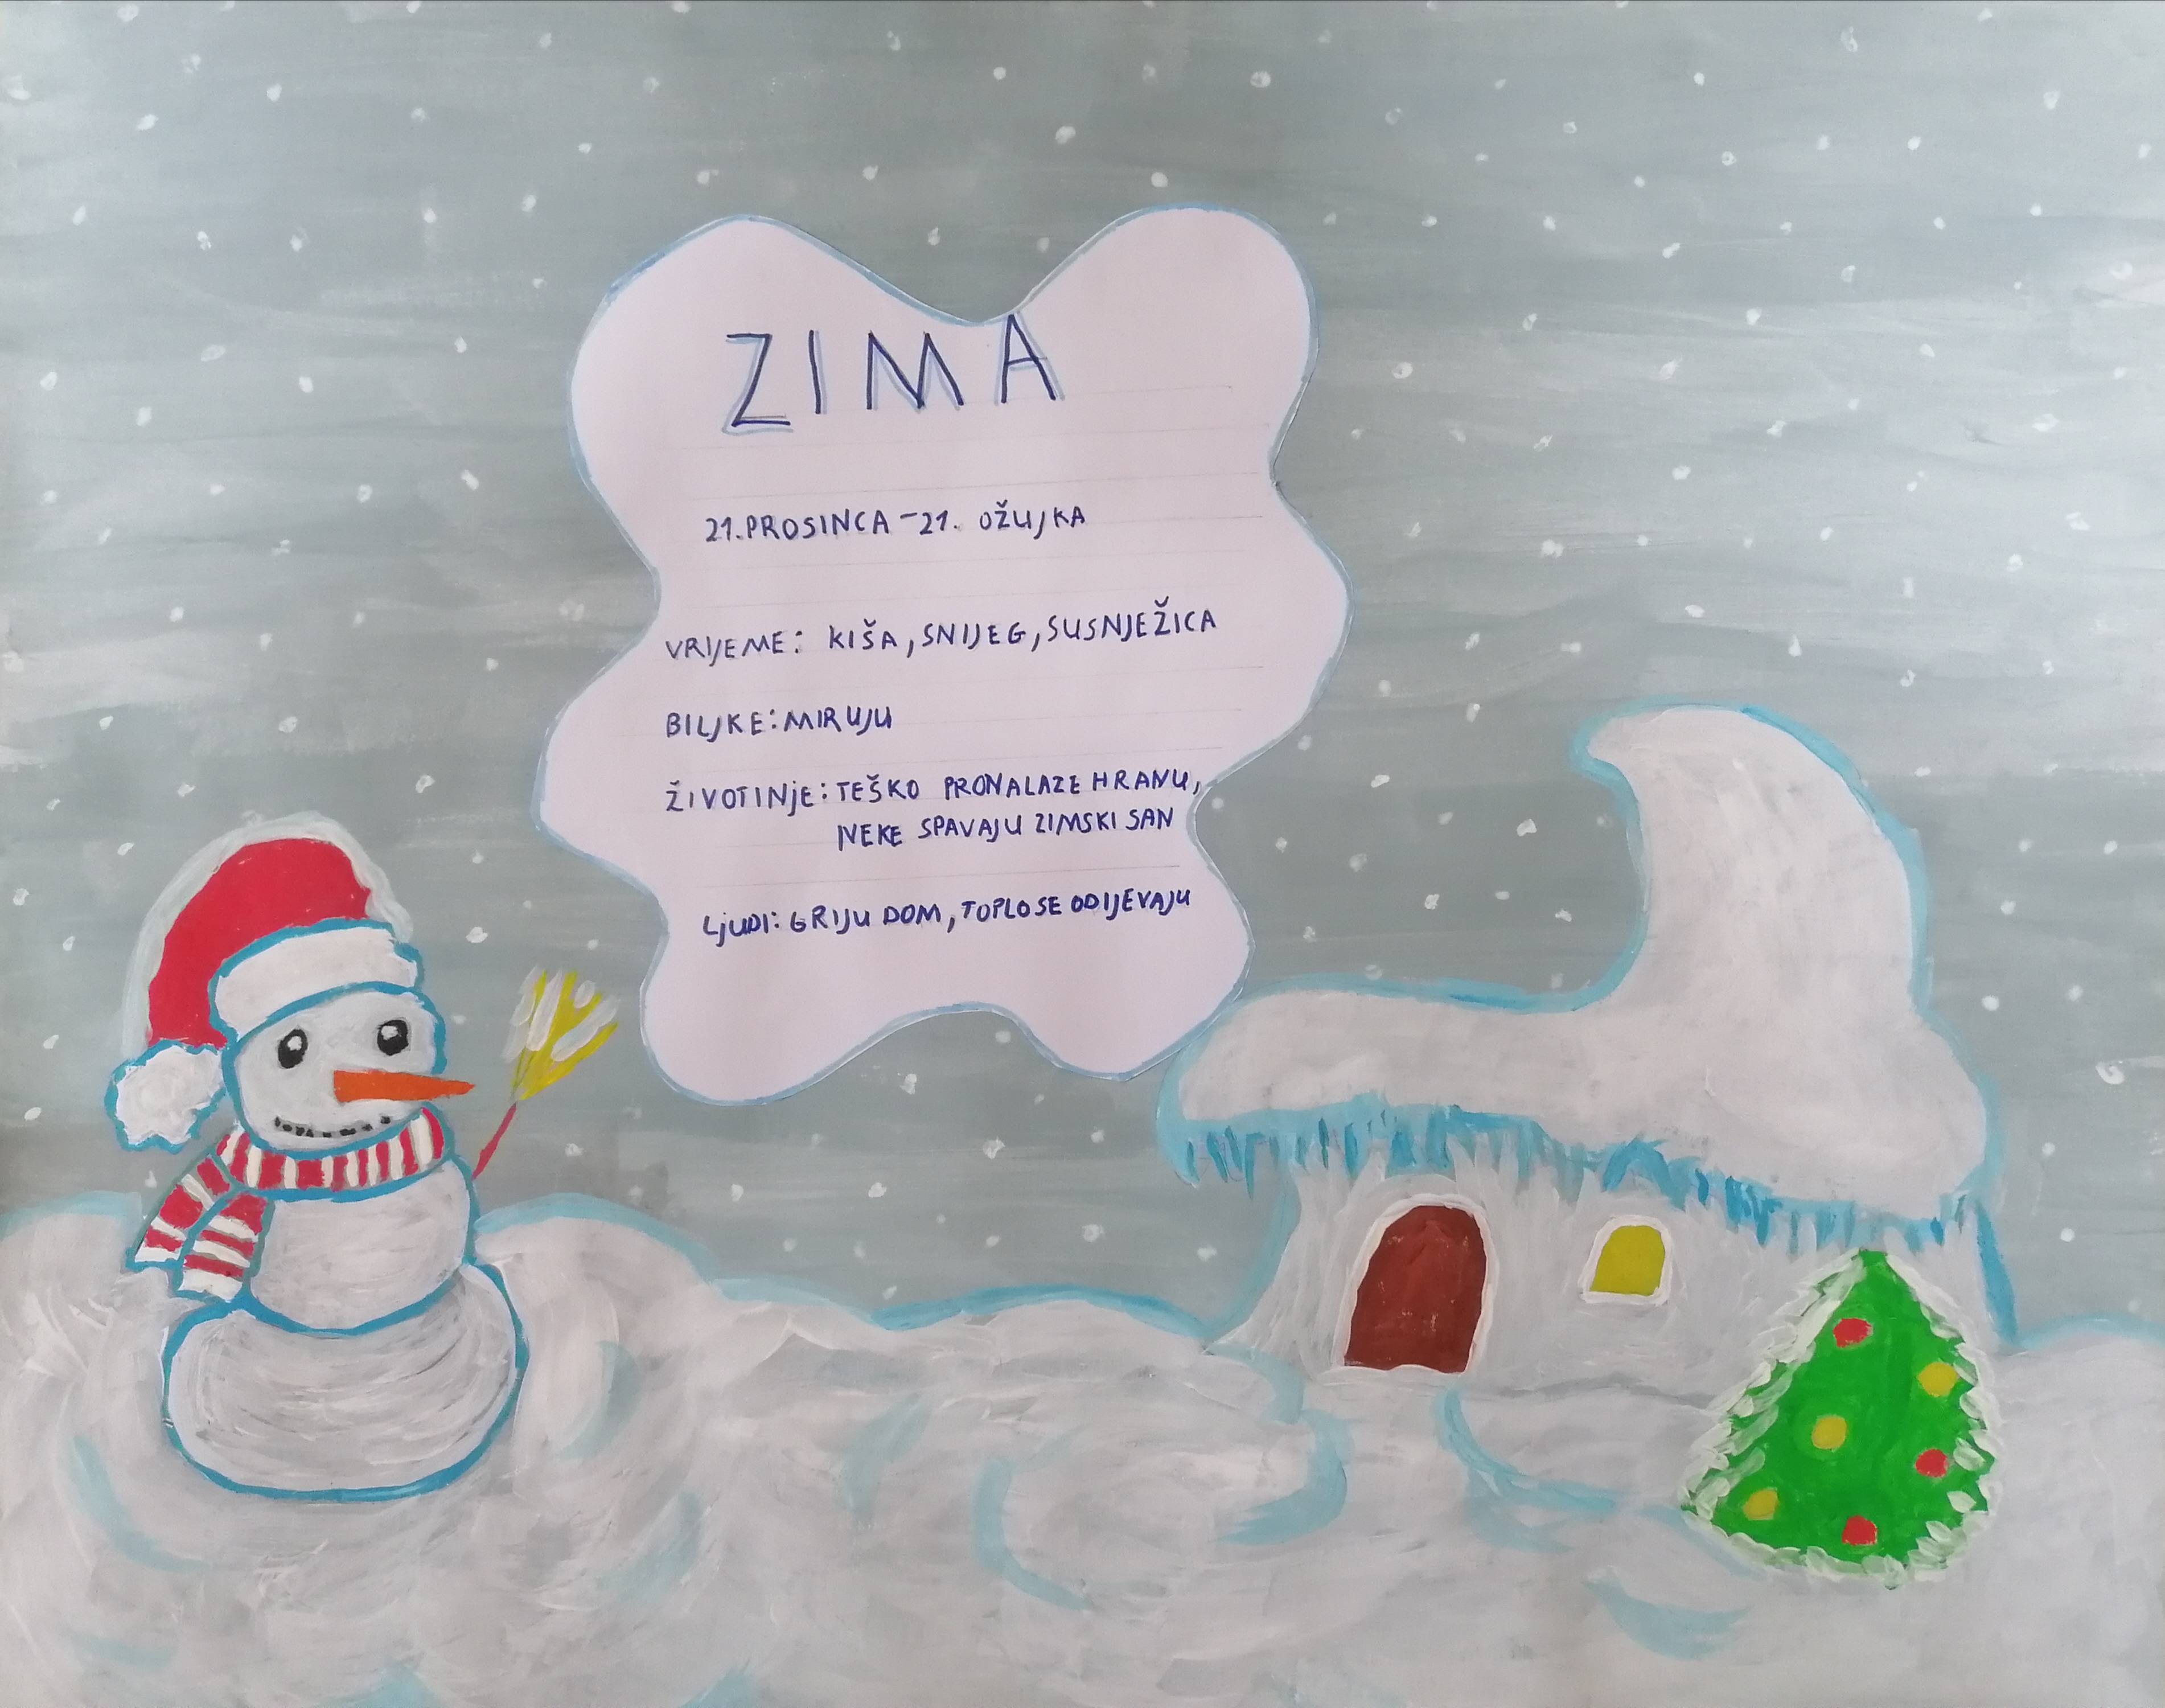 ZIMA
21. PROSINCA - 21. OŽUJKA
VRIJEME: KIŠA, SNIJEG, SUSNJEŽICA
BILJKE: MIRUJU
ŽIVOTINJE: TEŠKO PRONALAZE HRANU,
NEKE SPAVAJU ZIMSKI SAN
LJUDI: GRIJU DOM, TOPLO SE ODIJEVAJU